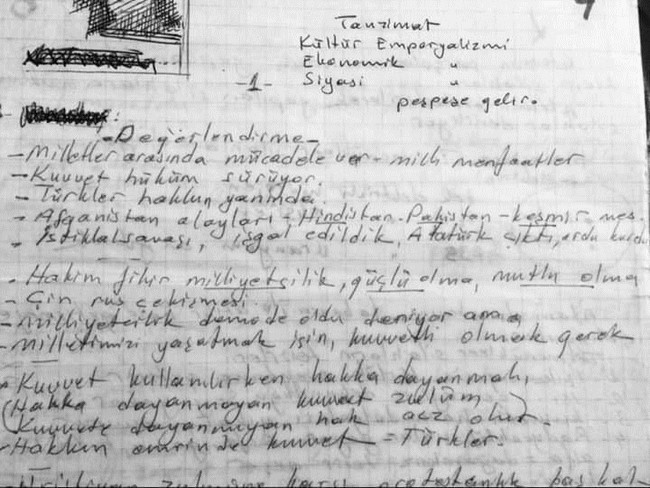 Tanzimat
Kültür Emperyalizmi
Ekonomik "
Siyasi "
peşpeşe gelir.
-1-
- Değerlendirme -
- Milletler arasında mücadele var - milli menfaatler
- Kuvvet hüküm sürüyor.
- Türkler hakkın yanında.
- Afganistan olayları - Hindistan - Pakistan - Keşmir mes.
- İstiklal savaşı, işgal edildik, Atatürk çıktı, ordu kurdu
- Hakim fikir milliyetçilik, güçlü olma, mutlu olma
- Çin rus çekişmesi.
- Milliyetcilik demode oldu deniyor ama
- Milletimizi yaşatmak için, kuvvetli olmak gerek
- Kuvvet kullanılırken hakka dayanmalı,
(Hakka dayanmayan kuvvet zulüm
Kuvvete dayanmayan hak acz olur).
- Hakkın emrinde kuvvet = Türkler.
- Hristiyan zulmüne karşı protestanlık